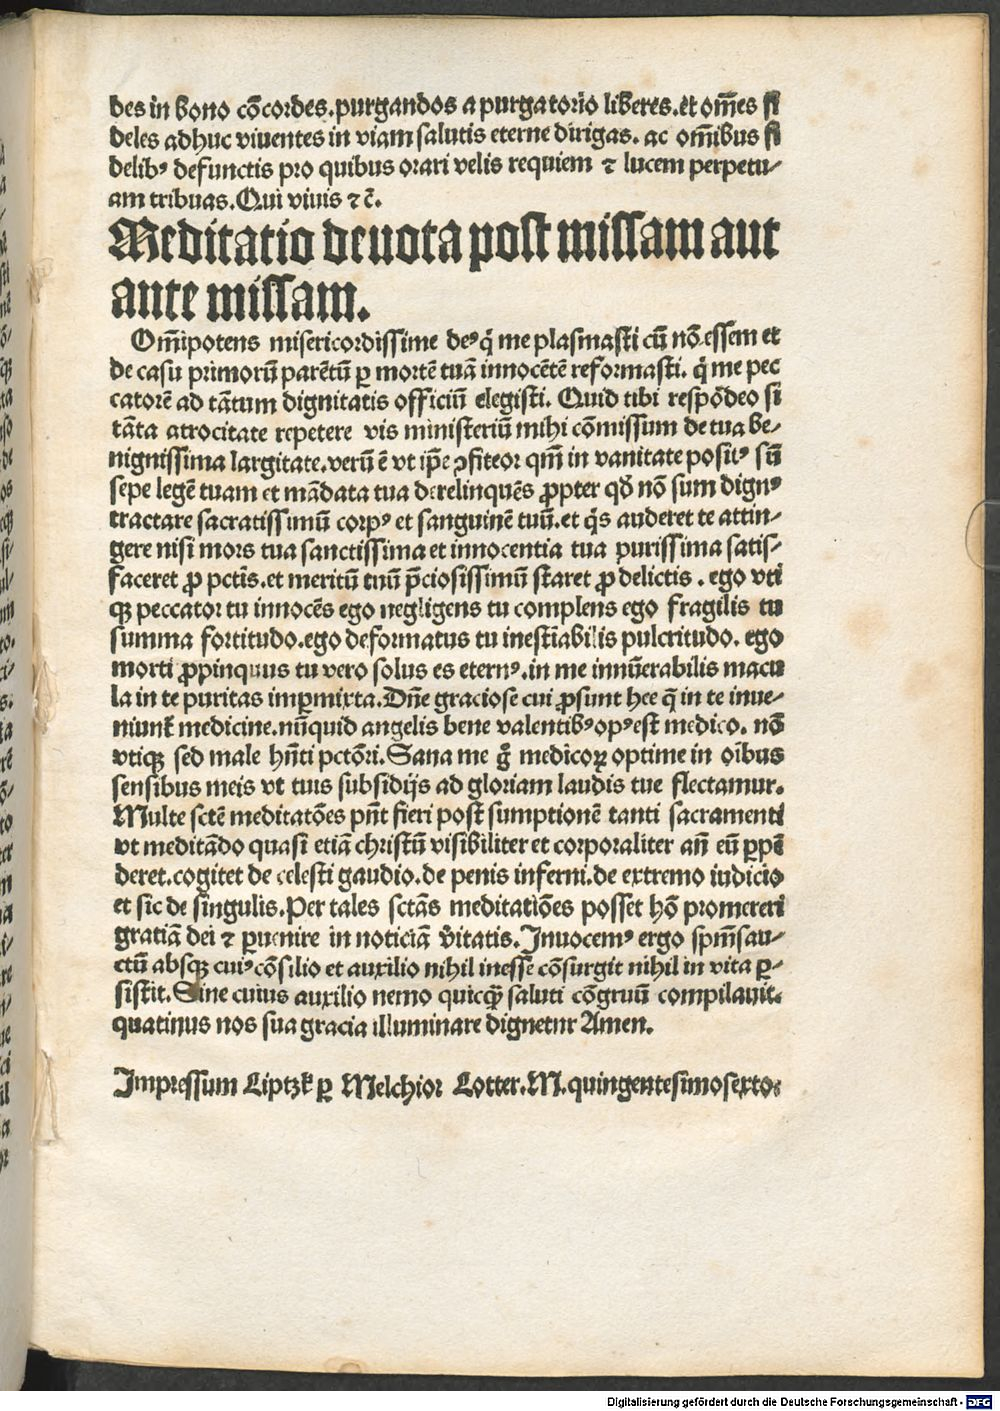 des in bono cōcordes.purgandos a purgatorio liberes.et om̄es fi
deles adhuc viuentes in viam salutis eterne dirigas. ac om̄ibus fi
delibꝰ defunctis pro quibus orari velis requiem ⁊ lucem perpetu⸗
am tribuas.Qui viuis ⁊ c̄.
Meditatio deuota post missam aut
ante missam.
Om̄ipotens misericordissime deꝰ q̇ me plasmasti cū nō essem et
de casu primorū parētū ꝑ mortē tuā innocētē reformasti. q̇ me pec
catorē ad tātum dignitatis officiū elegisti. Quid tibi respōdeo si
tāta atrocitate repetere vis ministeriū mihi cōmissum de tua be⸗
nignissima largitate.verū ē vt ip̄e ꝯfiteor qm̄ in vanitate positꝰ sū
sepe legē tuam et mādata tua derelinquēs ꝓpter qd̄ nō sum dignꝰ
tractare sacratissimū corpꝰ et sanguinē tuū.et q̇s auderet te attin⸗
gere nisi mors tua sanctissima et innocentia tua purissima satis⸗
faceret ꝓ pctīs.et meritū tuū p̄ciosissimū staret ꝓ delictis . ego vti
qꝫ peccator tu innocēs ego negligens tu complens ego fragilis tu
summa fortitudo.ego deformatus tu inestiabilis pulcritudo. ego
morti ꝓpinquus tu vero solus es eternꝰ.in me innūerabilis macu
la in te puritas imꝑmixta.Dn̄e graciose cui ꝓsunt hee q̄ in te inue⸗
niunt̄ medicine.nūquid angelis bene valentibꝰ opꝰ est medico. nō
vtiqꝫ sed male hn̄ti pctōri.Sana me g̊ medicoꝝ optime in oībus
sensibus meis vt tuis subsidijs ad gloriam laudis tue flectamur.
Multe sctē meditatōes pn̄t fieri post sumptionē tanti sacramenti
vt meditādo quasi etiā christū visibiliter et corporaliter an̄ eū ꝑpē
deret.cogitet de celesti gaudio.de penis inferni.de extremo iudicio
et sic de singulis.Per tales sctās meditatiōes posset hō promereri
gratiā dei ⁊ ꝑuenire in noticiā v̄itatis.Inuocemꝰ ergo spm̄san⸗
ctū absqꝫ cuiꝰ cōsilio et auxilio nihil inesse cōsurgit nihil in vita ꝑ⸗
sistit.Sine cuius auxilio nemo quicqꝫ̄ saluti cōgruū compilauit.
quatinus nos sua gracia illuminare dignetur Amen.
Impressum Liptzk̄ ꝑ Melchior Lotter.M.quingentesimosexto.